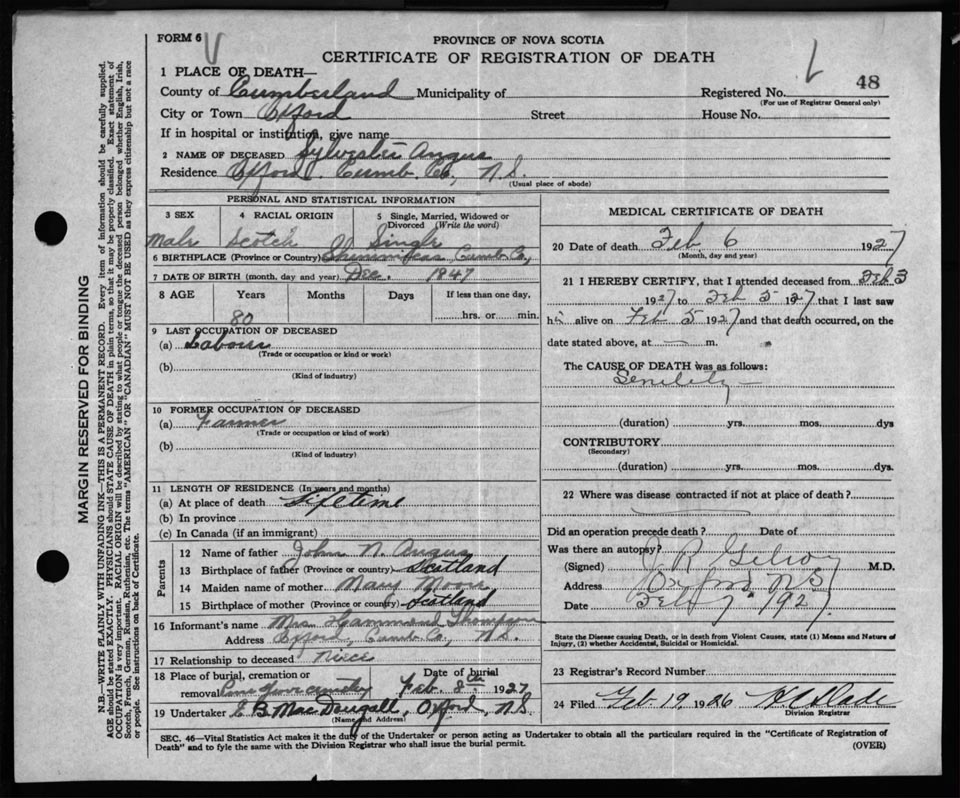 FORM 6
PROVINCE OF NOVA SCOTIA
CERTIFICATE OF REGISTRATION OF DEATH
48
1 PLACE OF DEATH—
County of Cumberland Municipality of Registered No.
(For use of Registrar General only)
City or Town Oxford Street House No.
If in hospital or institution, give name
2 NAME OF DECEASED Sylvester Angus
Residence Oxford, Cumb. Co., N.S.
(Usual place of abode)
PERSONAL AND STATISTICAL INFORMATION
3 SEX 4 RACIAL ORIGIN 5 Single, Married, Widowed or Divorced (Write the word)
Male Scotch Single
6 BIRTHPLACE (Province or Country) Cumb Co.,
7 DATE OF BIRTH (month, day and year) Dec. 1847
8 AGE Years Months Days If less than one day,
80 hrs. or min.
9 LAST OCCUPATION OF DECEASED
(a) Labour
(Trade or occupation or kind or work)
(b)
(Kind of industry)
10 FORMER OCCUPATION OF DECEASED
(a) Farmer
(Trade or occupation or kind of work)
(b)
(Kind of industry)
11 LENGTH OF RESIDENCE (In years and months)
(a) At place of death Lifetime
(b) In province
(c) In Canada (if an immigrant)
Parents
12 Name of father John N. Angus
13 Birthplace of father (Province or country) Scotland
14 Maiden name of mother Mary Moore
15 Birthplace of mother (Province or country) Scotland
16 Informant's name Mrs Hammond Thompson
Address Oxford, Cumb Co., N.S.
17 Relationship to deceased Niece
18 Place of burial, cremation or removal Date of burial
Pine Grove Feb. 8th 1927
19 Undertaker E B. MacDougall, Oxford, N.S.
(Name and Address)
MEDICAL CERTIFICATE OF DEATH
20 Date of death Feb 6 1927
(Month, day and year)
21 I HEREBY CERTIFY, that I attended deceased from Feb 3
1927 to Feb 5 1927 that I last saw
his alive on Feb 5 1927 and that death occurred, on the
date stated above, at — m.
The CAUSE OF DEATH was as follows:
Senility —
(duration) yrs. mos. dys
CONTRIBUTORY
(Secondary)
(duration) yrs. mos. dys.
22 Where was disease contracted if not at place of death?
Did an operation precede death? Date of
Was there an autopsy?
(Signed) R Gilroy M.D.
Address Oxford NS
Date Feb 7 1927
State the Disease causing Death, or in death from Violent Causes, state (1) Means and Nature of
Injury, (2) whether Accidental, Suicidal or Homicidal.
23 Registrar's Record Number
24 Filed Feb 19 1926 Slade
Division Registrar
SEC. 46—Vital Statistics Act makes it the duty of the Undertaker or person acting as Undertaker to obtain all the particulars required in the "Certificate of Registration of
Death" and to fyle the same with the Division Registrar who shall issue the burial permit.
(OVER)
MARGIN RESERVED FOR BINDING
N.B.—WRITE PLAINLY, WITH UNFADING INK—THIS IS A PERMANENT RECORD. Every item of information should be carefully supplied.
AGE should be stated EXACTLY. PHYSICIANS should STATE CAUSE OF DEATH in plain terms, so that it may be properly classified. Exact statement of
OCCUPATION is very important. RACIAL ORIGIN will be described by stating to what people or tongue the deceased person belonged whether English, Irish,
Scotch, French, German, Russian, Ruthenian, etc. The terms "AMERICAN" OR "CANADIAN" MUST NOT BE USED as they express citizenship but not a race
or people. See instructions on back of Certificate.